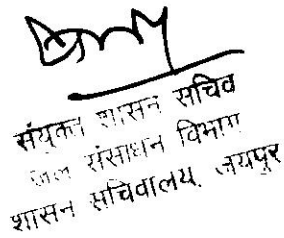 संयुक्त शासन सचिव
जल संसाधन विभाग
शासन सचिवालय, जयपुर